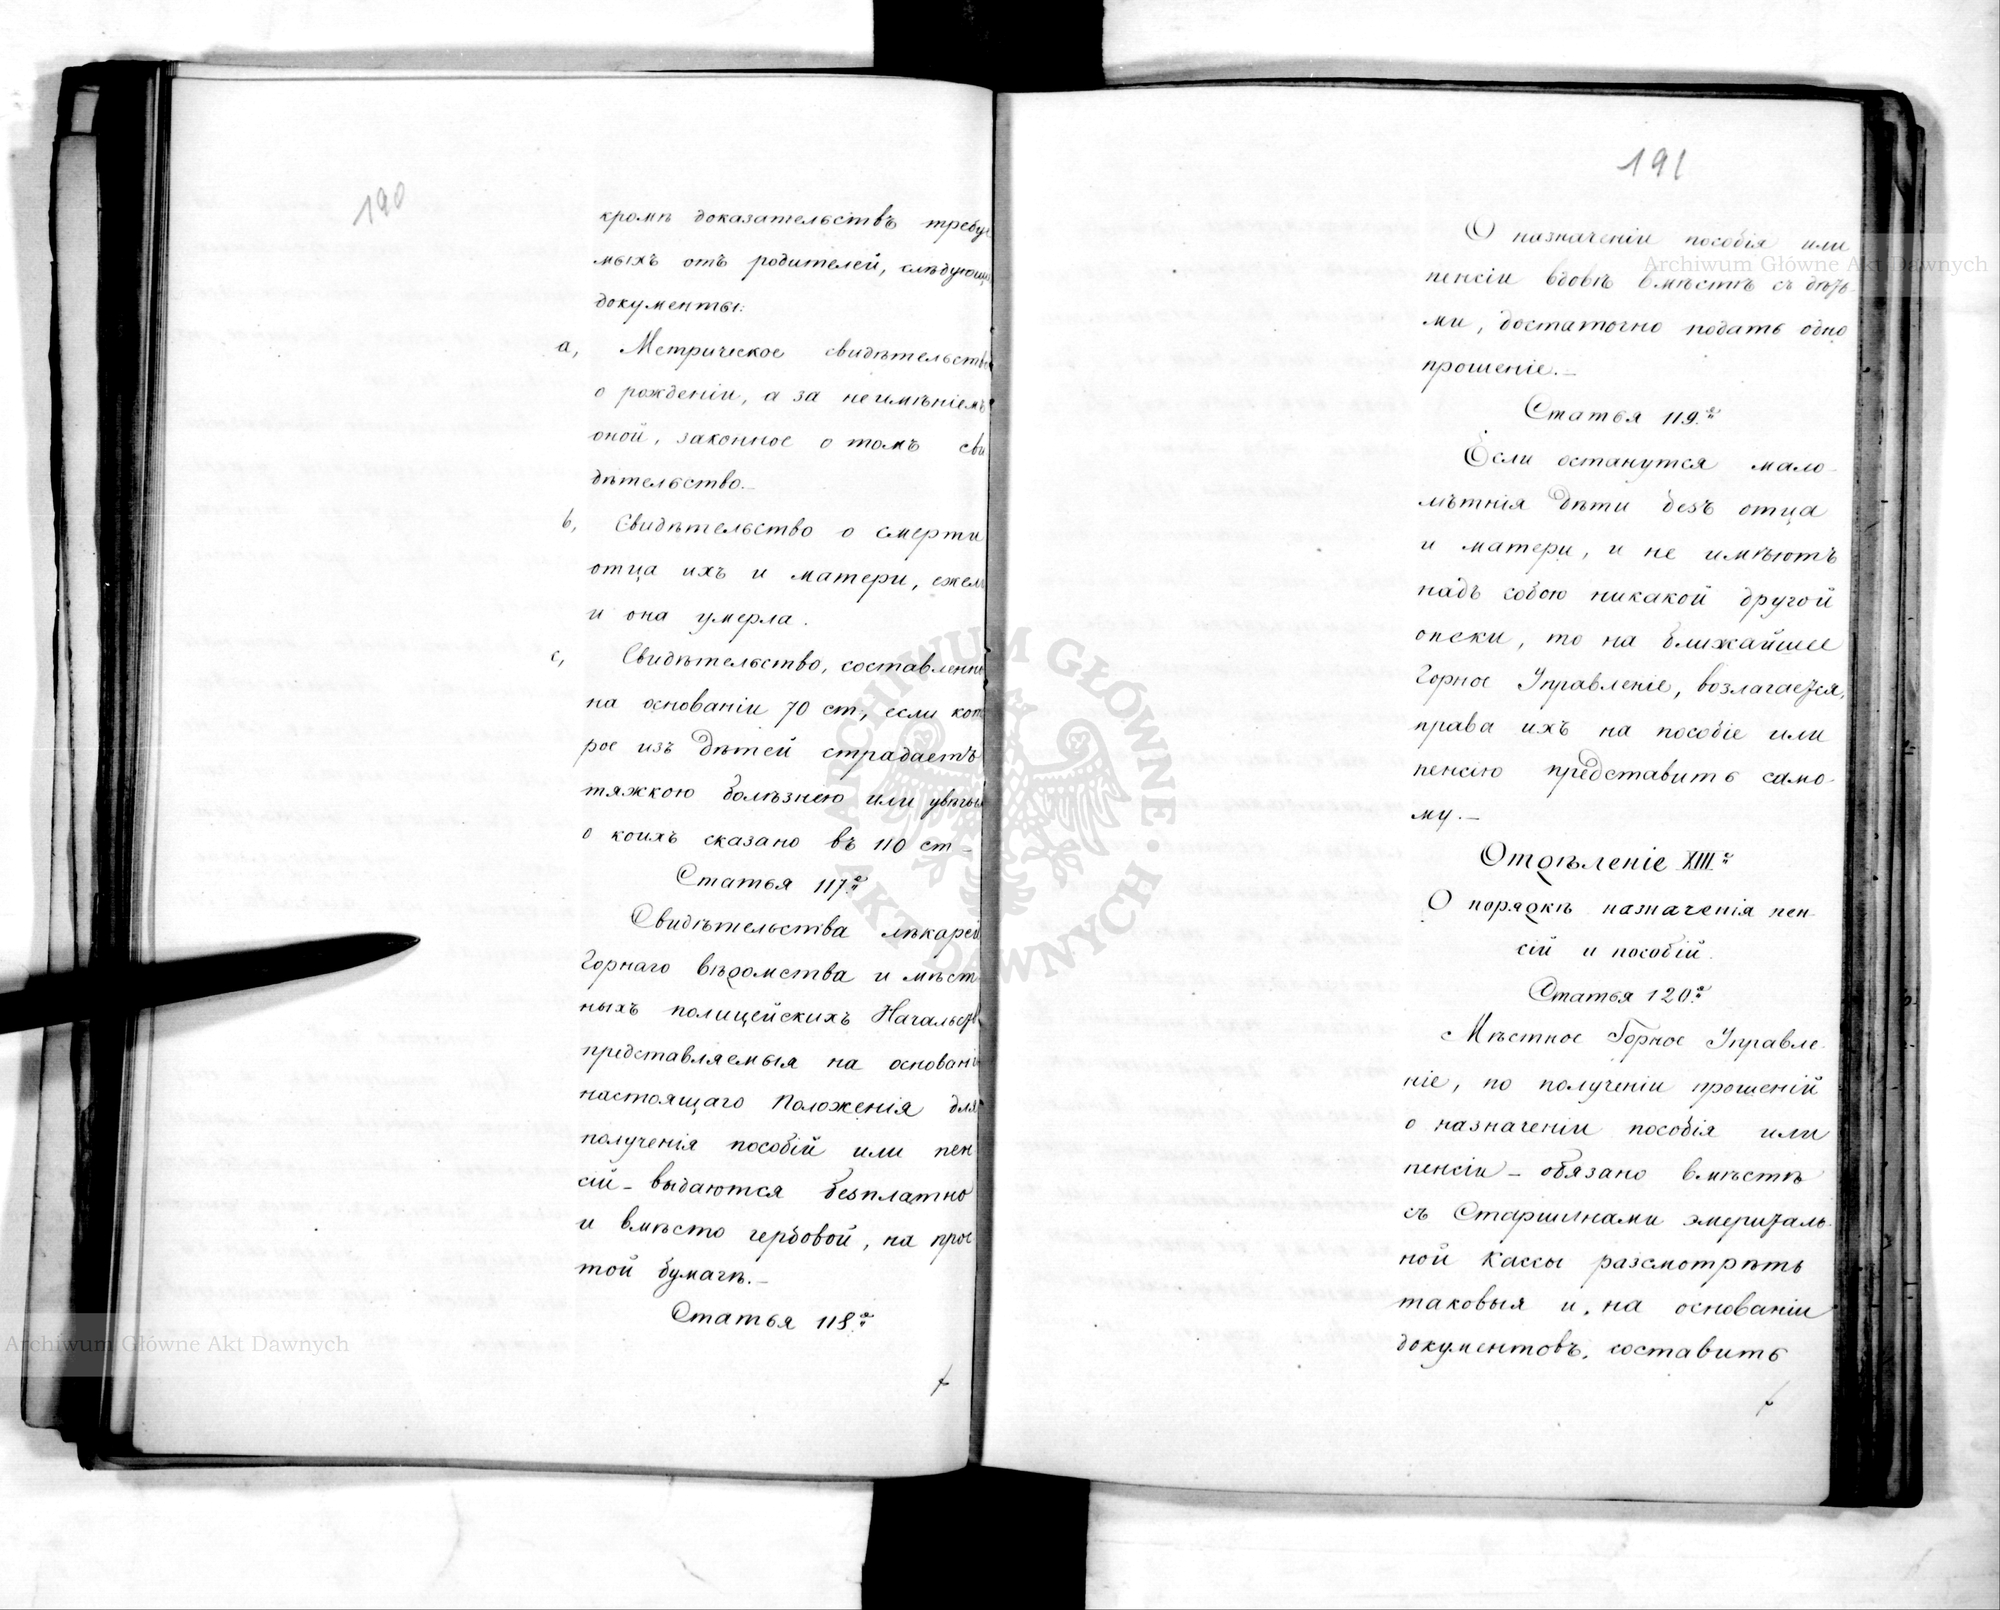 190
кромѣ доказательствъ требуе
мыхъ отъ родителей, слѣдующіе
документы:
a, Метрическое свидѣтельство
о рожденіи, а за неимѣніемъ
оной, законное о томъ сви
дѣтельство.—
b, Свидѣтельство о смерти
отца ихъ и матери, ежели
и она умерла.
c, Свидѣтельство, составленное
на основаніи 70 ст., если кото
рое изъ Дѣтей страдаетъ
тяжкою болѣзнею или увѣчьемъ
о коихъ сказано въ 110 ст—
Статья 117.я
Свидѣтельства лѣкарей
Горнаго вѣдомства и мѣст
ныхъ полицейскихъ Начальствъ
представляемыя на основаніи
настоящаго Положенія для
полученія пособій или пен
сій — выдаются безплатно
и вмѣсто гербовой, на прос
той бумагѣ.—
Статья 118.я
191
О назначеніи пособія или
пенсіи вдовѣ вмѣстѣ съ дѣть-
ми, достаточно подать одно
прошеніе.—
Статья 119.я
Если останутся мало-
лѣтнія Дѣти безъ отца
и матери, и не имѣютъ
надъ собою никакой другой
опеки, то на ближайшее
Горное Управленіе, возлагается,
права ихъ на пособіе или
пенсію представить само-
му.—
Отдѣленіе XIII.е
О порядкѣ назначенія пен-
сій и пособій.
Статья 120.я
Мѣстное Горное Управле-
ніе, по полученіи прошеній
о назначеніи пособія или
пенсіи — обязано вмѣстѣ
съ Старшинами эмериталь-
ной кассы разсмотрѣть
таковыя и, на основаніи
документовъ, составить
Archiwum Główne Akt Dawnych
Archiwum Główne Akt Dawnych
ARCHIWUM GŁÓWNE · AKT DAWNYCH ·